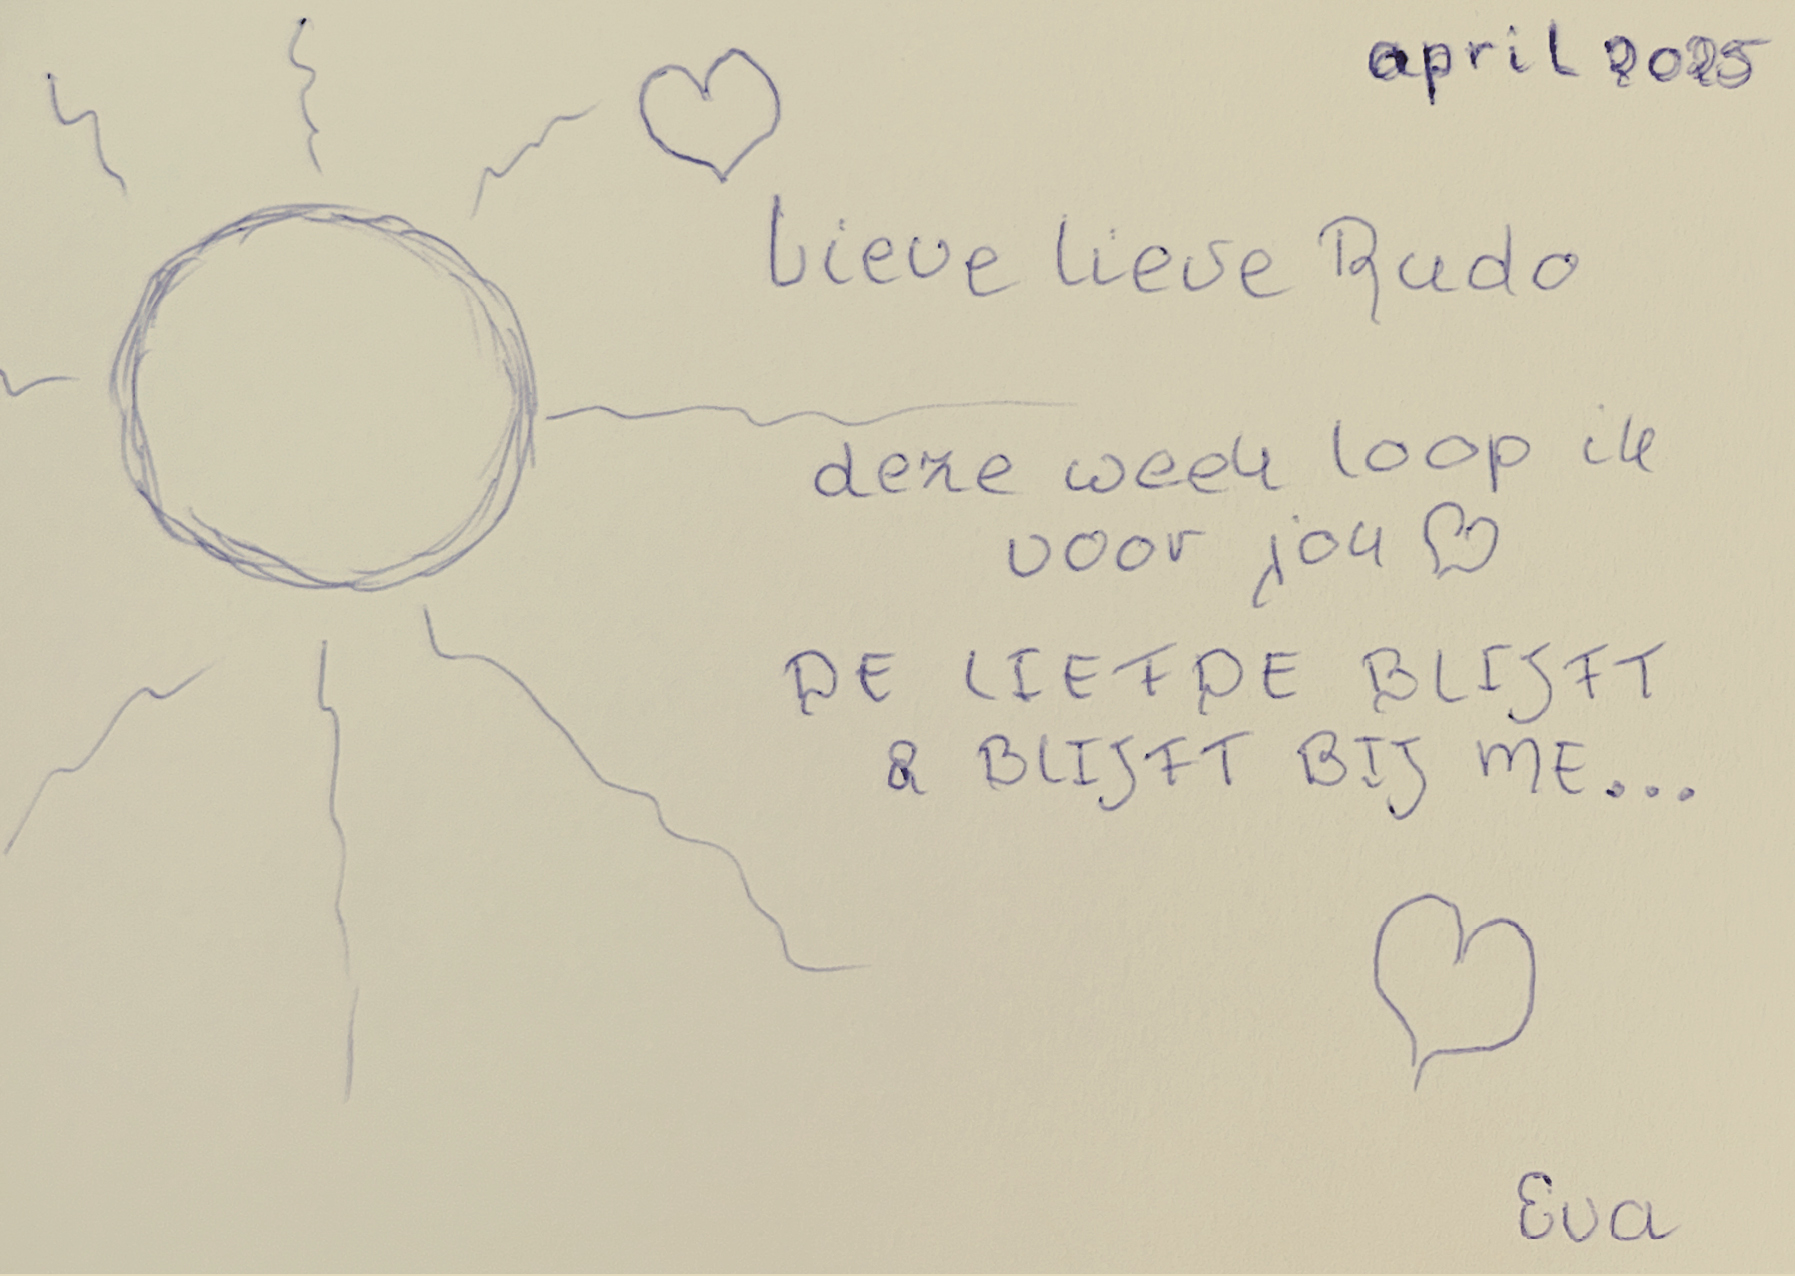 april 2025
Lieve lieve Rudo
deze week loop ik
voor jou ♡
DE LIEFDE BLIJFT
& BLIJFT BIJ ME...
Eva